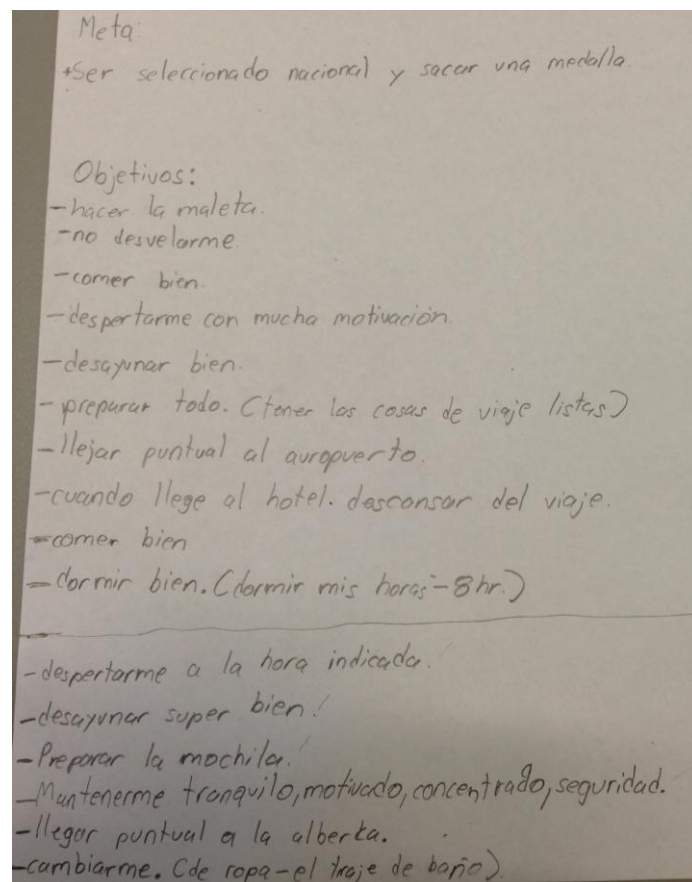 Meta:
+Ser seleccionado nacional y sacar una medalla.
Objetivos:
-hacer la maleta.
-no desvelarme
-comer bien.
-despertarme con mucha motivación.
-desayunar bien.
-preparar todo. (tener las cosas de viaje listas)
-llejar puntual al auropuerto.
-cuando llege al hotel. descansar del viaje.
-comer bien
-dormir bien. (dormir mis horas-8hr.)
-despertarme a la hora indicada!
-desayunar super bien!
-Preparar la mochila!
-Mantenerme tranquilo, motivado, concentrado, seguridad.
-llegar puntual a la alberka.
-cambiarme. (de ropa-el traje de baño).